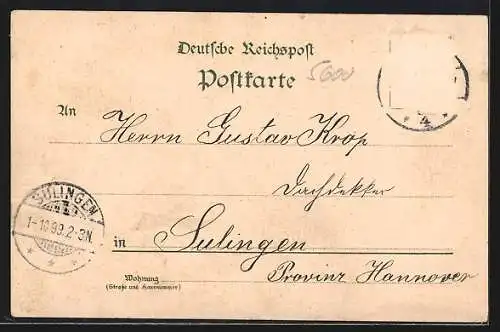 Deutsche Reichspost
Postkarte
5600
An
Herrn Gustav Krop
Dachdekker
in Sulingen
Provinz Hannover
Wohnung
(Straße und Hausnummer)
SULINGEN
1-10 99.2-3N.
* * *
* 4 *